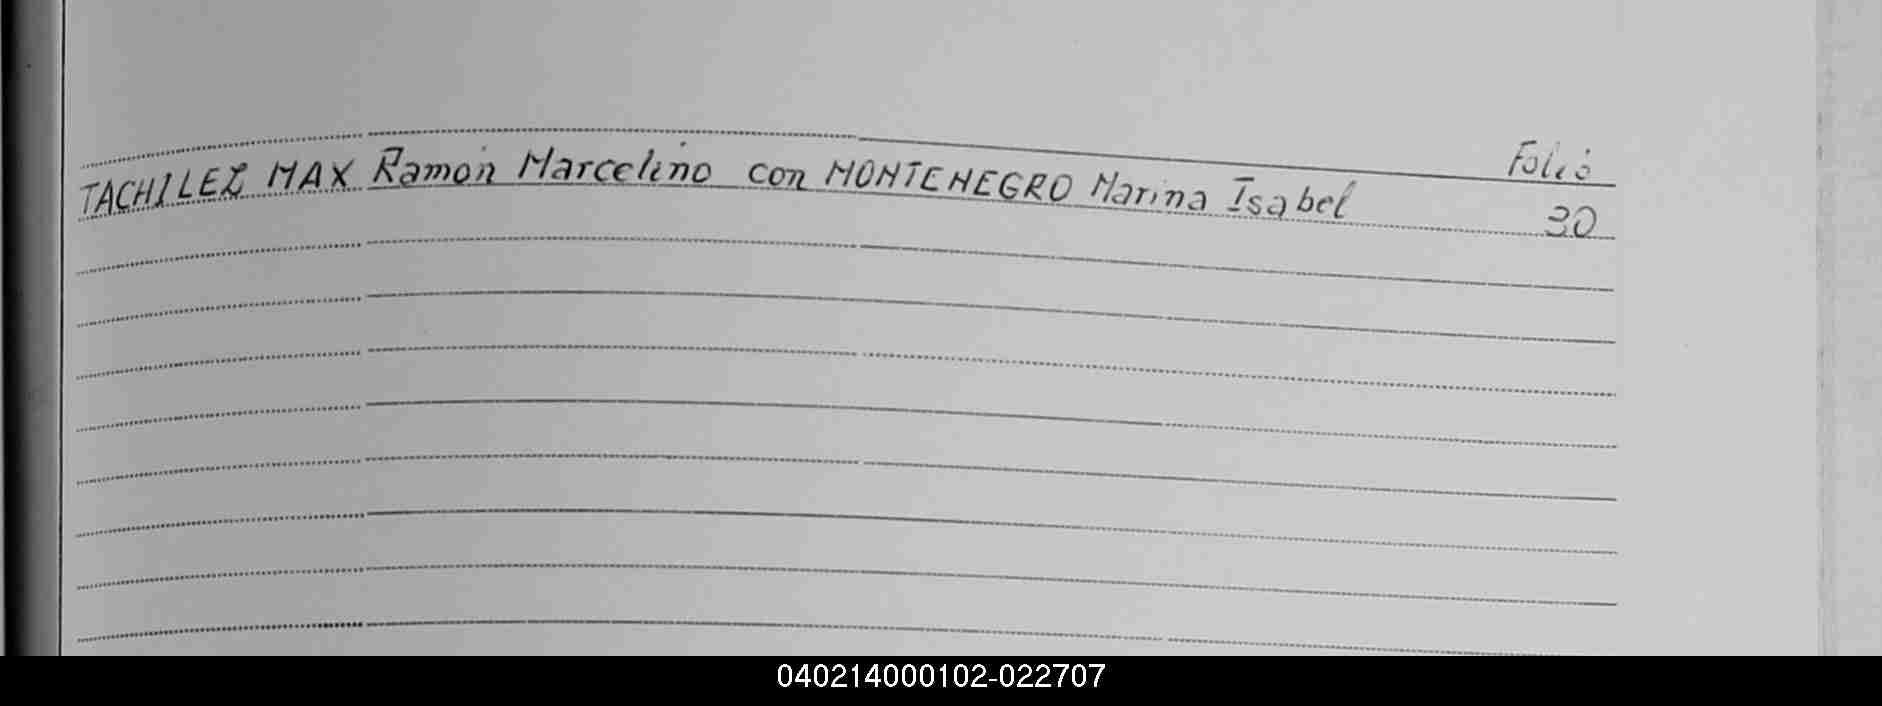 Folio
TACHILEZ MAX Ramón Marcelino con MONTENEGRO Marina Isabel 30
040214000102-022707